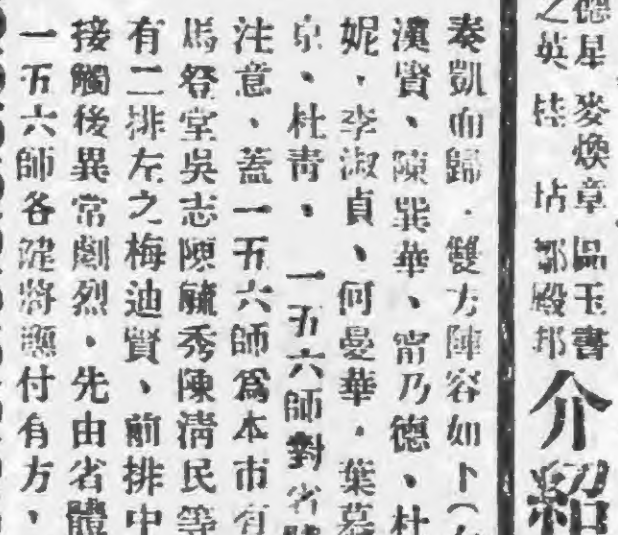 德星 麥煥章 區玉書
之英 桂坫 鄒殿邦
介紹
奏凱而歸．雙方陣容如下（
漢賢、陳巽華、甯乃德、杜
妮．李淑貞、何曼華．葉慕
京、杜靑、一五六師對省體
注意、蓋一五六師爲本市有
馬登堂吳志陳毓秀陳淸民等
有二排左之梅迪賢、前排中
接觸後異常劇烈．先由省體
一五六師各健將應付有方、